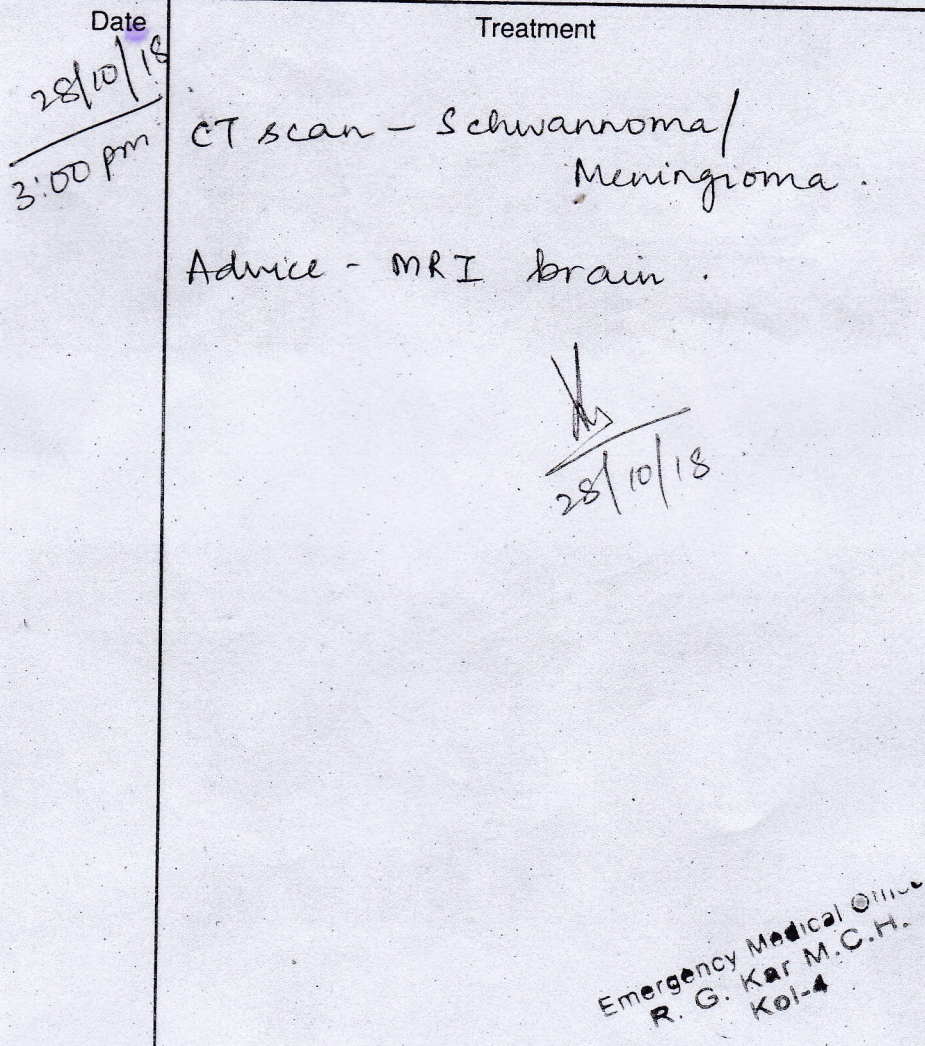 Date Treatment
28/10/18
3:00 pm
CT scan - Schwannoma/
Meningioma.
Advice - MRI brain.
28/10/18
Emergency Medical
R. G. Kar M.C.H.
Kol-4